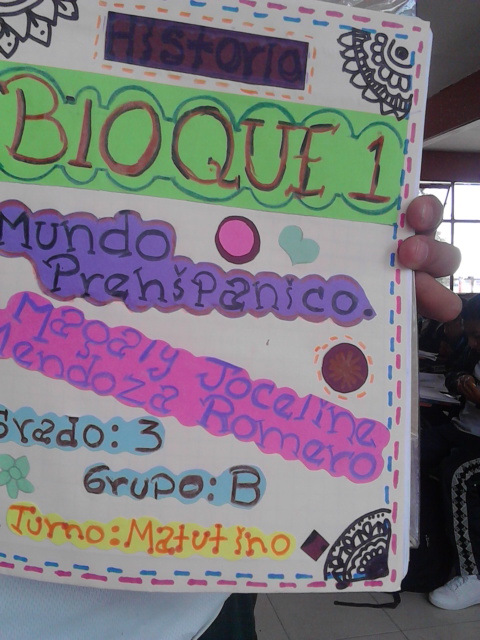 Historia
BIOQUE 1
Mundo
Prehispanico.
Magaly Joceline
Mendoza Romero
Grado: 3
Grupo: B
Turno: Matutino